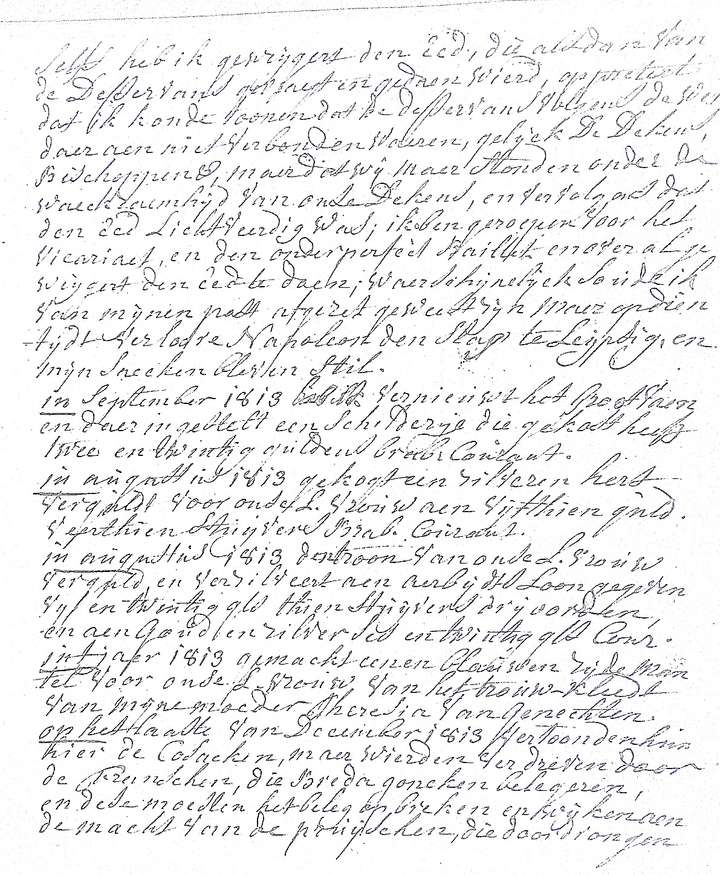 selfs heb ik geweygert den Eed, die als dan van
de Desservans gevraegt en gedaen wierd, op pretext
dat ik konde toonen dat de desservans volgens de wet
daer aen niet verbonden waeren, gelyck De Dekens,
Bisschoppen &, maer dat wy maer stonden onder de
waeckzaemhyd van onse Dekens, en vervolgens dat
den Eed Lichtveerdig was; ik ben geroepen voor het
vicariaet, en den onderperfect Baillet en over al ge
wygert den Eed te doen; waerschynelyck soude ik
van mynen post afgezet geweest zyn maer op dien
tydt verloore Napoleon den slag te Leyptig, en
myn saecken bleven stil.
in September 1813 vernieuwt het
en daer in gestelt een schilderye die gekost heeft
twee en twintig guldens brab. Courant.
in augustus 1813 gekogt een zilveren hert
verguldt voor onse L. Vrouw aen vyfthien guld.
veerthien stuyvers Brab. Courant.
in augustus 1813 den troon van onse L. Vrouw
verguld, en verzilveert aen aerbyds Loon gegeven
vyf en twintig gls thien stuyvers dry oorden,
en aen Goud en zilver ses en twintig gls Cour.
in t jaer 1813 gemackt eenen blauwen zyde man
tel voor onse L. Vrouw van het trouw-kleedt
van myne moeder Theresia Van Genechten.
op het laatste van December 1813 vertoonden hun
hier de Cosacken, maer wierden verdreven door
de Franschen, die Breda goncken belegeren,
en dese moesten het beleg opbreken en wyken aen
de macht van de pruysschen, die doordrongen